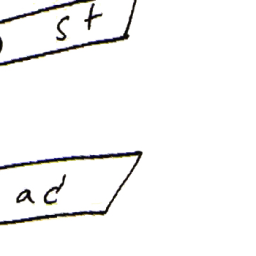 st
ad